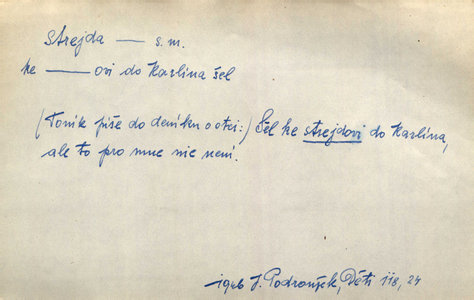 Strejda — s. m.
ke — ovi do Karlína šel
(Toník píše do deníku o otci:) Šel ke strejdovi do Karlína,
ale to pro mne nic není.
1946 J. Děti 118, 24